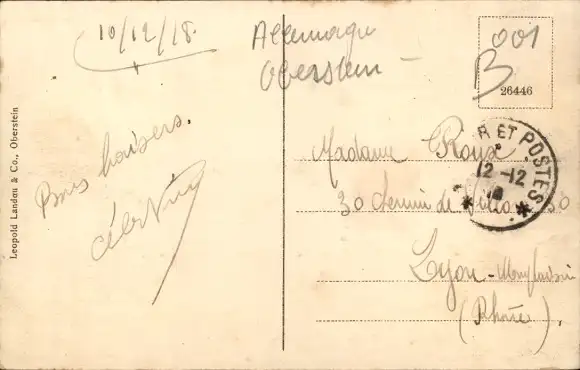 10/12/18.
Allemagne
Oberstein
001
B
26446
Leopold Landem & Co., Oberstein
Bons baisers.
R ET POSTES
12-12
Madame Roux
30 chemin de 30
Lyon-
(Rhône)